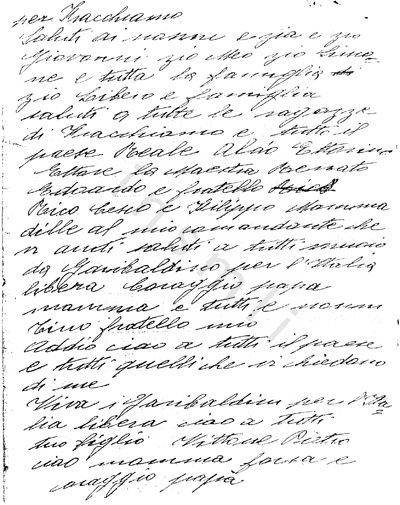 per Tracchiamo
Saluti ai nonni e zia e zio
Giovanni zio Meo zio Simo-
ne e tutta la famiglia di
zio Libero e famiglia
saluti a tutte le ragazze
di Tracchiamo e tutti il
paese Reale Aldo
Ettore la Maestra Renato
Edoardo e fratello
Rico Cesco e Filippo Mamma
dille al mio comandante che
vi anti saluti a tutti muoio
da Garibaldino per l'Italia
libera Coraggio papa
mamma e tutti e nonni
Tino fratello mio
Addio ciao a tutti il paese
e tutti quelli che vi chiedono
di me
Viva i Garibaldini per l'Ita
lia libera ciao a tutti
tuo figlio Pietro
ciao mamma forza e
coraggio papà